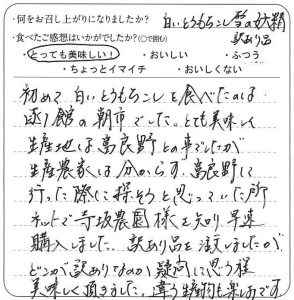 ・何をお召し上がりになりましたか? 白いとうもろこし 雪の妖精
訳あり品
・食べたご感想はいかがでしたか?(○で囲む)
・とっても美味しい! ・おいしい ・ふつう
・ちょっとイマイチ ・おいしくない
初めて白いとうもろこしを食べたのは
函館の朝市でした。とても美味しく
生産地は富良野との事でしたが
生産農家は分からず、富良野に
行った際に探そうと思っていた所
ネットで寺坂農園様を知り早速
購入しました。訳あり品を注文しましたが
どこが訳ありなのか疑問に思う程
美味しく頂きました。違う生産物も楽しみです